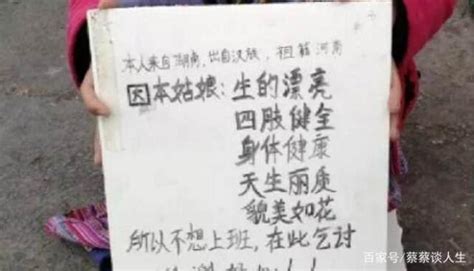 本人来自湖南,出自汉族,祖籍河南
因本姑娘:生的漂亮
四肢健全
身体健康
天生丽质
貌美如花
所以不想上班,在此乞讨
百家号/蔡蔡谈人生